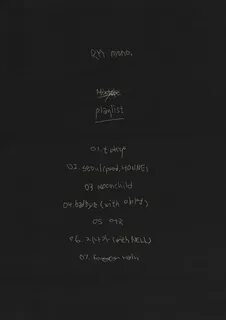 RM mono.
playlist
01. tokyo
02. seoul (prod. HONNE)
03 moonchild
04. badbye (with eAeon)
05 어긋
06. 지나가 (with NELL)
07. forever rain